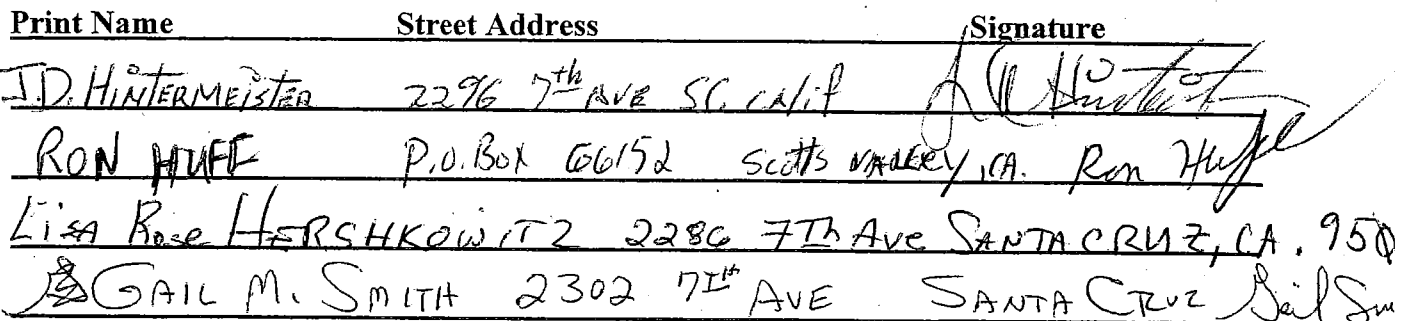 Print Name Street Address Signature
J.D. HINTERMEISTER 2296 7th AVE SC. CALIF
RON HUFF P.O. BOX 66152 SCOTTS VALLEY, CA. Ron Huff
Lisa Rose HERSHKOWITZ 2286 7Th Ave SANTA CRUZ, CA. 950
GAIL M. SMITH 2302 7th AVE SANTA CRUZ Gail Sm